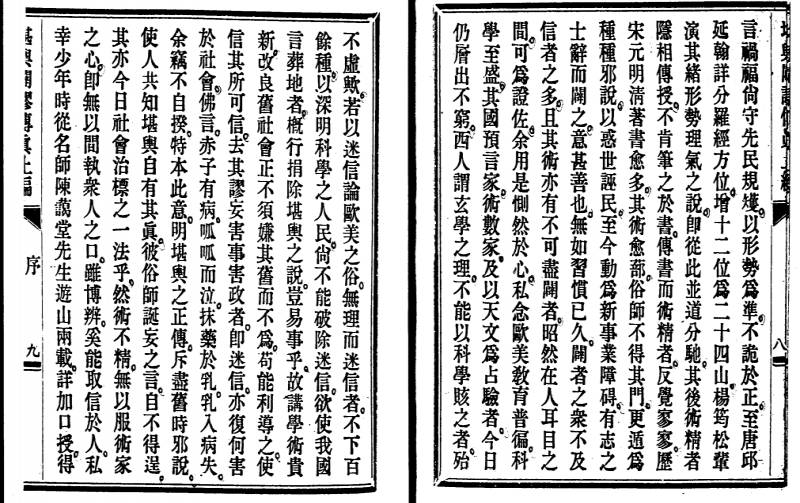 堪輿闢謬傳眞上編
言禍福尙守先民規矱。以形勢爲準。不詭於正。至唐邱
延翰詳分羅經方位。增十二位爲二十四山。楊筠松輩
演其緒形勢理氣之說。卽從此並道分馳。其後術精者
隱相傳授。不肯筆之於書。傳書而術精者。反覺寥寥。歷
宋元明淸著書愈多。其術愈蔀。俗師不得其門。更遁爲
種種邪說。以惑世誣民。至今動爲新事業障碍。有志之
士辭而闢之。意甚善也。無如習慣已久。闢者之衆不及
信者之多。且其術亦有不可盡闢者。昭然在人耳目之
間。可爲證佐。余用是惻然於心。私念歐美敎育普徧。科
學至盛。其國預言家。術數家。及以天文爲占驗者。今日
仍層出不窮。西人謂玄學之理。不能以科學賅之者。殆
八
不虛歟。若以迷信論歐美之俗。無理而迷信者。不下百
餘種。以深明科學之人民。尙不能破除迷信。欲使我國
言葬地者。槪行捐除堪輿之說。豈易事乎。故講學術貴
新。改良舊社會正不須嫌其舊而不爲。苟能利導之。使
信其所可信。去其謬妄害事害政者。卽迷信。亦復何害
於社會。佛言。赤子有病。呱呱而泣。抹藥於乳。乳入病失。
余竊不自揆。特本此意。明堪輿之正傳。斥盡舊時邪說。
使人共知堪輿自有其眞。彼俗師誕妄之言。自不得逞。
其亦今日社會治標之一法乎。然術不精。無以服術家
之心。卽無以間執衆人之口。雖博辨。奚能取信於人。私
幸少年時從名師陳藹堂先生遊山兩載。詳加口授。得
堪輿闢謬傳眞上編
序
九